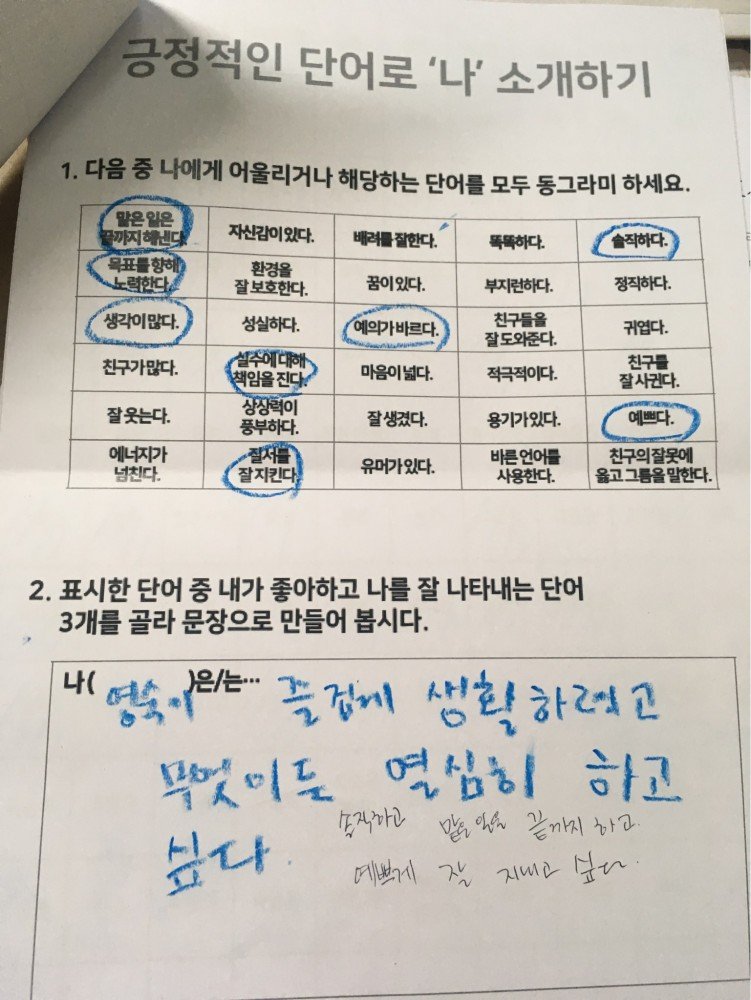 긍정적인 단어로 '나' 소개하기
1. 다음 중 나에게 어울리거나 해당하는 단어를 모두 동그라미 하세요.
맡은 일은 끝까지 해낸다.
자신감이 있다.
배려를 잘한다.
똑똑하다.
솔직하다.
목표를 향해 노력한다.
환경을 잘 보호한다.
꿈이 있다.
부지런하다.
정직하다.
생각이 많다.
성실하다.
예의가 바르다.
친구들을 잘 도와준다.
귀엽다.
친구가 많다.
실수에 대해 책임을 진다.
마음이 넓다.
적극적이다.
친구를 잘 사귄다.
잘 웃는다.
상상력이 풍부하다.
잘 생겼다.
용기가 있다.
예쁘다.
에너지가 넘친다.
질서를 잘 지킨다.
유머가 있다.
바른 언어를 사용한다.
친구의 잘못에 옳고 그름을 말한다.
2. 표시한 단어 중 내가 좋아하고 나를 잘 나타내는 단어
3개를 골라 문장으로 만들어 봅시다.
나( 영숙이 )은/는··· 즐겁게 생활하려고
무엇이든 열심히 하고
싶다.
솔직하고 맡은 일을 끝까지 하고.
예쁘게 잘 지내고 싶다.